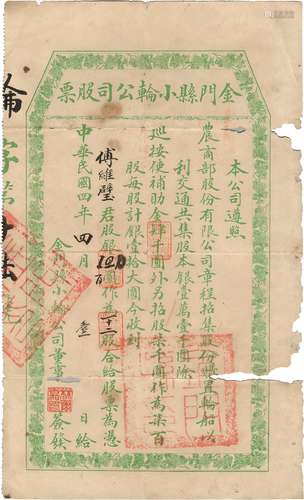 金門縣小輪公司股票
本公司遵照
農商部股份有限公司章程招集股份購置輪船以
利交通共集股本銀壹萬壹千圓除
巡按使補助金肆千圓外另招股柒千圓作為柒百
股每股計銀壹拾大圓今收到
傅維璧 君股銀 圓作為 股合給股票為憑
中華民國四年四月 日給
金門縣小輪公司董事 簽發